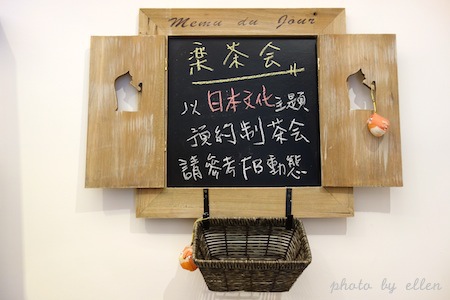 Menu du Jour
楽茶会
以日本文化主題
預約制茶会
請參考FB動態
photo by ellen